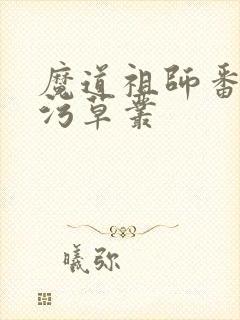 魔道祖师番
污草丛
曦弥